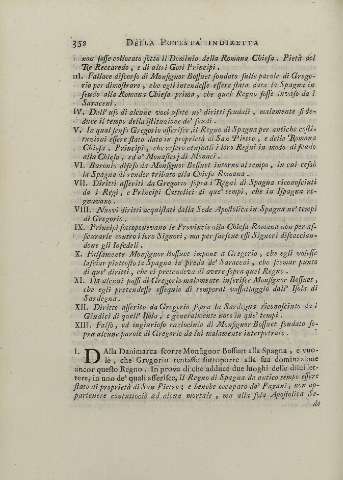 352 DELLA POTESTA' INDIRETTA
non fosse collocato sotto il Dominio della Romana Chiesa. Pietà del
Re Reccaredo, e di altri Goti Principi.
III. Fallace discorso di Monsignor Bossuet fondato sulle parole di Grego-
rio per dimostrare, che egli intendesse essere stata data la Spagna in
feudo alla Romana Chiesa prima, che quel Regno fosse invaso da i
Saraceni.
IV. Dall'uso di alcune voci usate ne' diritti feudali, malamente si de-
duce il tempo dell'istituzione de' feudi.
V. In qual senso Gregorio asserisse, il Regno di Spagna per antiche costi-
tuzioni essere stato dato in proprietà di San Pietro, e della Romana
Chiesa. Principi, che essere costituiti i loro Regni in modo di feudo
alla Chiesa, ed a' Monasterj di Monaci.
VI. Baronio difeso da Monsignor Bossuet intorno al tempo, in cui cessò
la Spagna di render tributo alla Chiesa Romana.
VII. Diritti asseriti da Gregorio sopra i Regni di Spagna riconosciuti
da i Regi, e Principi Cattolici di que' tempi, che in Ispagna re-
gnavano.
VIII. Nuovi diritti acquistati dalla Sede Apostolica in Spagna ne' tempi
di Gregorio.
IX. Principi sottoponevano le Provincie alla Chiesa Romana non per as-
sicurarle contro i loro Signori, ma per farsene essi Signori discaccian-
done gli Infedeli.
X. Falsamente Monsignor Bossuet impone a Gregorio, che egli volesse
lasciar piuttosto la Spagna in preda de' Saraceni, che scemar punto
di que' diritti, che si pretendeva di avere sopra quel Regno.
XI. Da alcuni passi di Gregorio malamente inferisce Monsignor Bossuet,
che egli pretendesse ossequio di temporal vassallaggio dall'Isola di
Sardegna.
XII. Diritto asserito da Gregorio sopra la Sardegna riconosciuto dai
Giudici di quell'Isola, e generalmente noto in que' tempi.
XIII. Falso, ed ingiurioso raziocinio di Monsignor Bossuet fondato so-
pra alcune parole di Gregorio da lui malamente interpretate.
I. DAlla Danimarca scorre Monsignor Bossuet alla Spagna, e vuo-
le, che Gregorio tentasse sottoporre alla sua dominazione
ancor questo Regno. In prova di che adduce due luoghi delle di lui let-
tere, in uno de' quali asserisce, il Regno di Spagna da antico tempo essere
stato di proprietà di San Pietro; e benchè occupato da' Pagani, non ap-
partenere contuttociò ad alcun mortale, ma alla sola Apostolica Se-
de